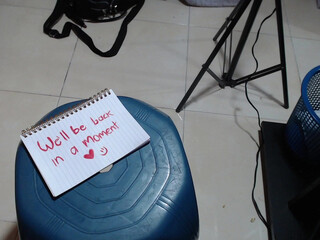 We'll be back
in a moment
♥ :)